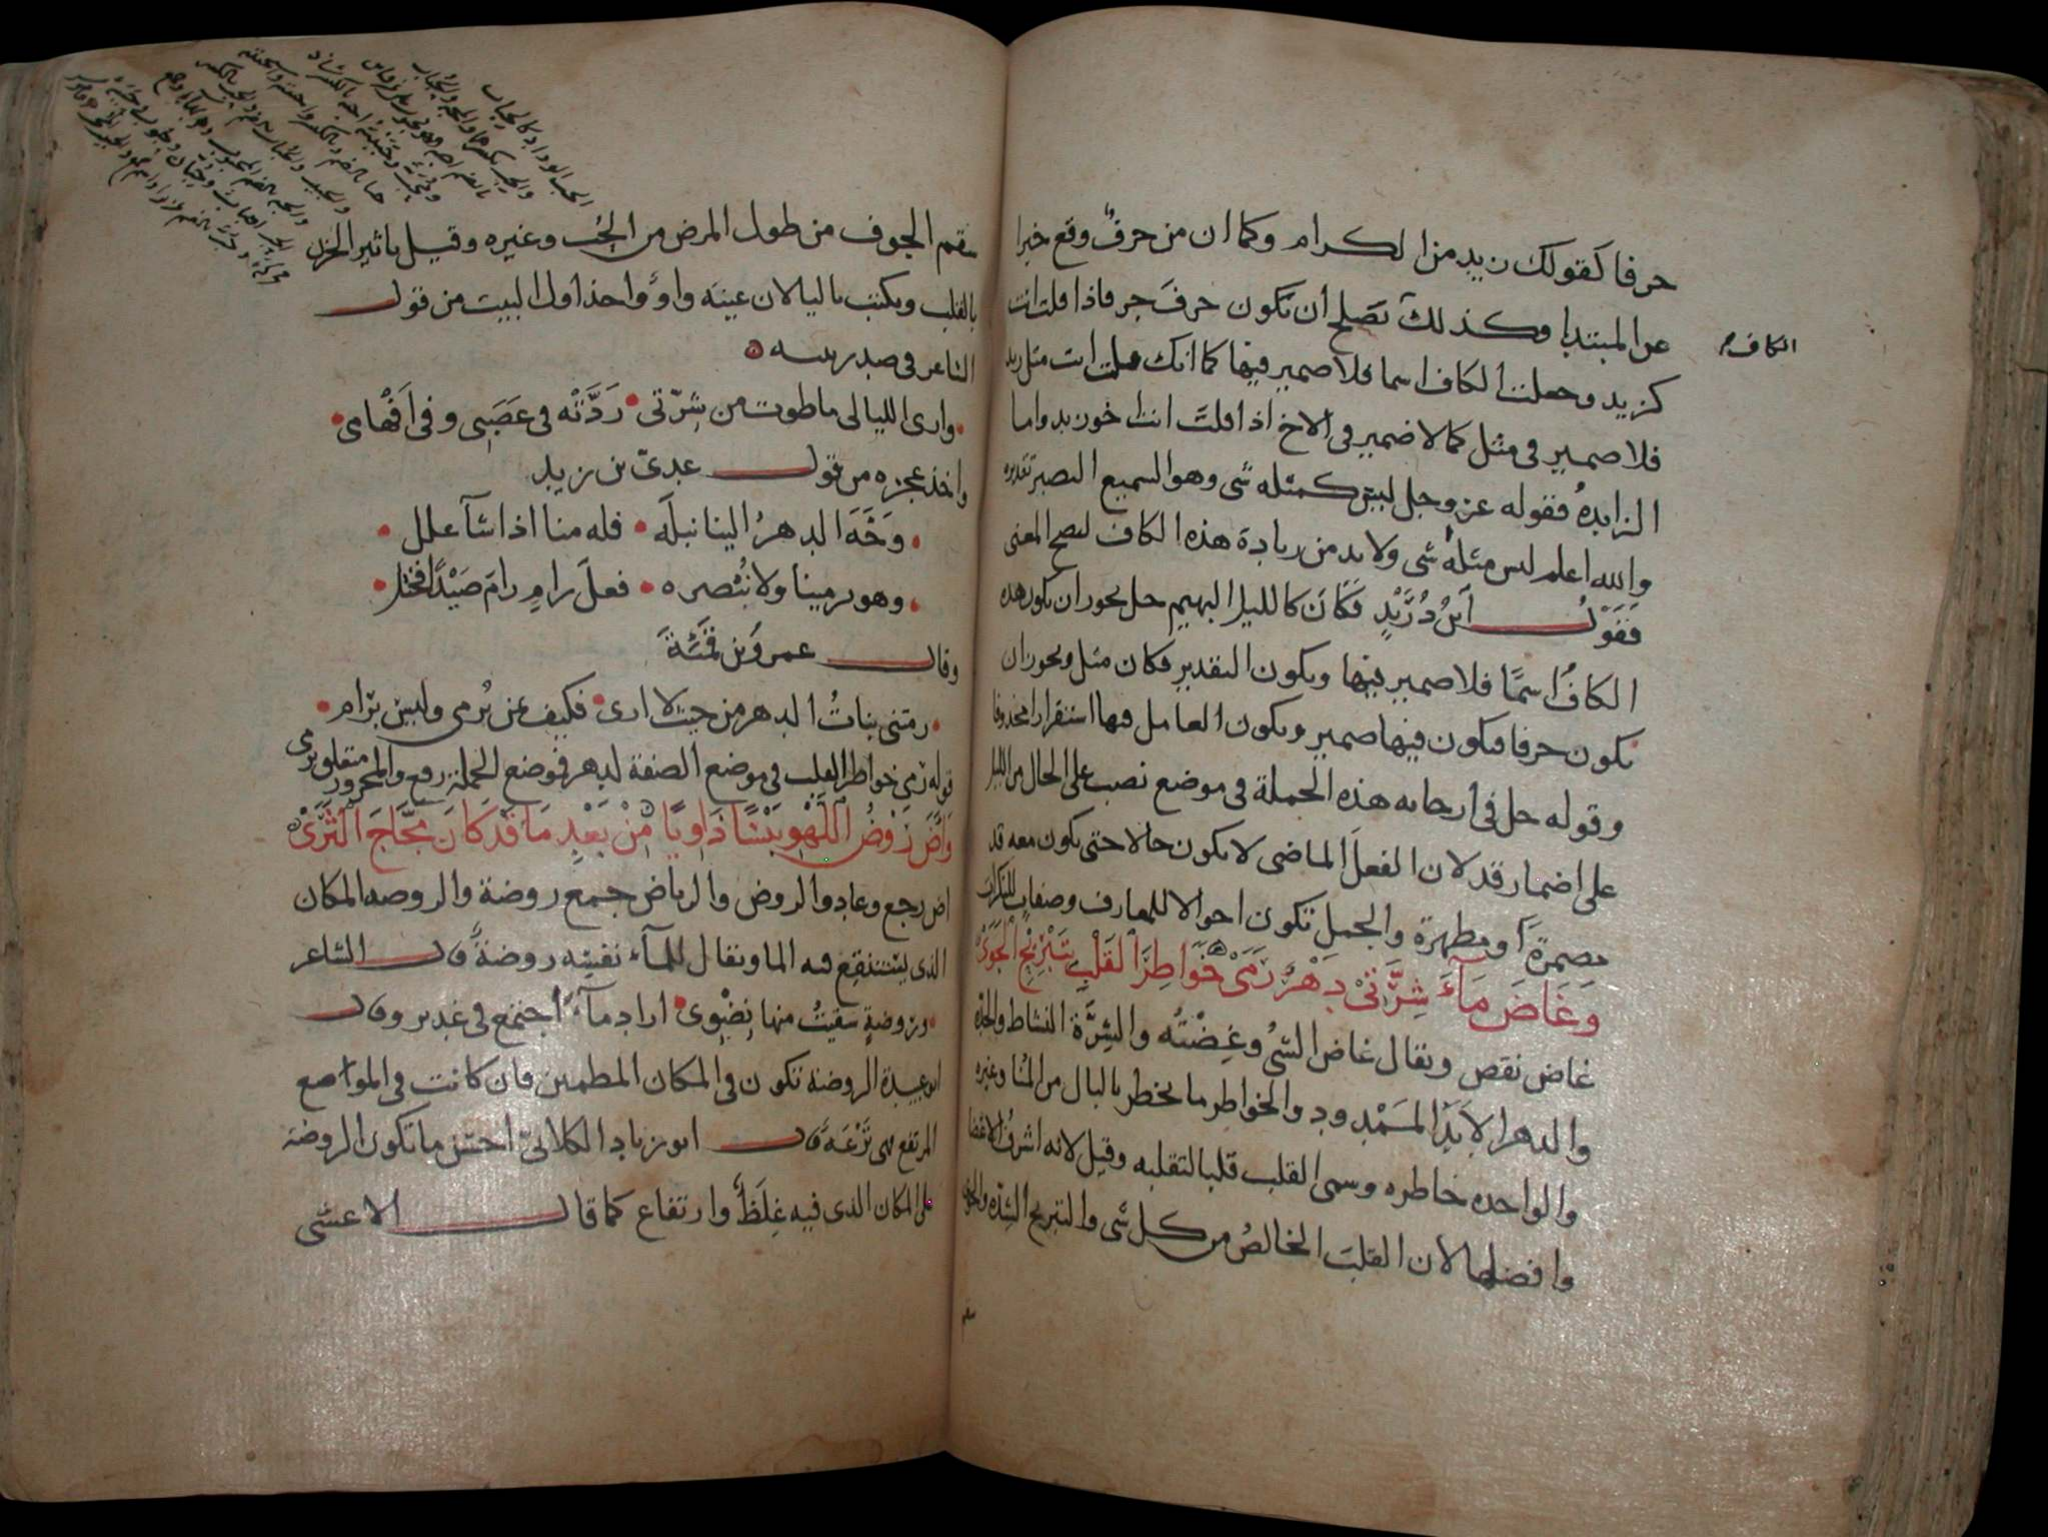 حرفا كقولك زيد من الكرام وكما ان من حرفٌ وقع خبرا
عن المبتدإ وكذلك تصلح أن تكون حرفَ جر فاذا قلت انت
كزيد وجعلت الكاف اسما فلا ضمير فيها كما انك قلت انت مثل زيد
فلا ضمير في مثل كما لا ضمير في الاخ اذا قلت انت اخو زيد واما
الزايدةُ فقوله عز وجل ليس كمثله شى وهو السميع البصير تقديره
والله اعلم ليس مثلهُ شى ولا بد من زيادة هذه الكاف ليصح المعنى
فَقَوْلُ ابنُ دُرَيْدٍ فَكَانَ كالليل البهيم حل يجوز ان تكون هذه
الكافُ اسمًا فلا ضمير فيها ويكون التقدير فكان مثل ويجوز ان
تكون حرفا فيكون فيها ضمير ويكون العامل فيها استقرارا محذوفا
وقوله حل في أرجائه هذه الجملة في موضع نصب على الحال من الليل
على اضمار قد لان الفعلَ الماضى لا يكون حالا حتى يكون معه قد
مضمرةً او مظهرة والجمل تكون احوالا للمعارف وصفات للنكرات
وَغَاضَ مَآءَ شِرَّتِىْ دَهْرٌ رَمَىْ خَوَاطِرَ الْقَلْبِ بِتَبْرِيْحِ الْجَوَىْ
غاض نقص ويقال غاض الشىُ وغِضْتُه والشِرَّة النشاط والحدة
والدهر الأبَدُ المَمْدود والخواطر ما يخطر بالبال من المُنا وغيره
والواحده خاطره وسمى القلب قلبا لتقلبه وقيل لانه اشرفُ الاعضا
وافضلها لان القلبَ الخالصُ من كل شى والتبريح الشِدّه والجوى
الكاف
سقم الجوف من طول المرض من الحُب وغيره وقيل تاثير الحزن
بالقلب ويكتب باليا لان عينَه واوٌ واخذ اول البيت من قول
الشاعر في صدر بيته
وارى الليالى ما طوت من شِرّتى رَدَّتْه في عَصَبى وفي اَفْهامى
واخذ عجزه من قول عدىّ بن زيد
وَجَّهَ الدهرُ الينا نبلَه فله منا اذا شآ علل
وهو يرمينا ولا نُبْصره فعلَ رامٍ رامَ صَيْدًا فختل
وقال عمرو بن قَمِئَةَ
رمتنى بناتُ الدهر من حيث لا ارى فكيف بمن يُرمى وليس برَام
قوله رمى خواطر القلب في موضع الصفة لدهر فموضع الجملة رفع والمجرور متعلق برمى
وَآضَ رَوْضُ اللَّهْوِ يَبْسًا ذَاوِيًا مِنْ بَعْدِ مَا قَدْ كَانَ مَجَّاجَ الثَّرَىْ
اض رجع وعاد والروض والرياض جمع روضة والروضه المكان
الذى يستنقع فيه الما ويقال للمآء نفسِه روضةٌ قال الشاعر
وروضةٍ سقيتُ منها نِضْوى اراد مآءً اجتمع في غدير وقال
ابو عبيدة الروضة تكون في المكان المطمين فان كانت في المواضع
المرتفع فهى تُرْعَةٌ قال ابو زياد الكلابىّ احسن ما تكون الروضة
على المكان الذى فيه غِلَظٌ وارتفاع كما قال الاعشى